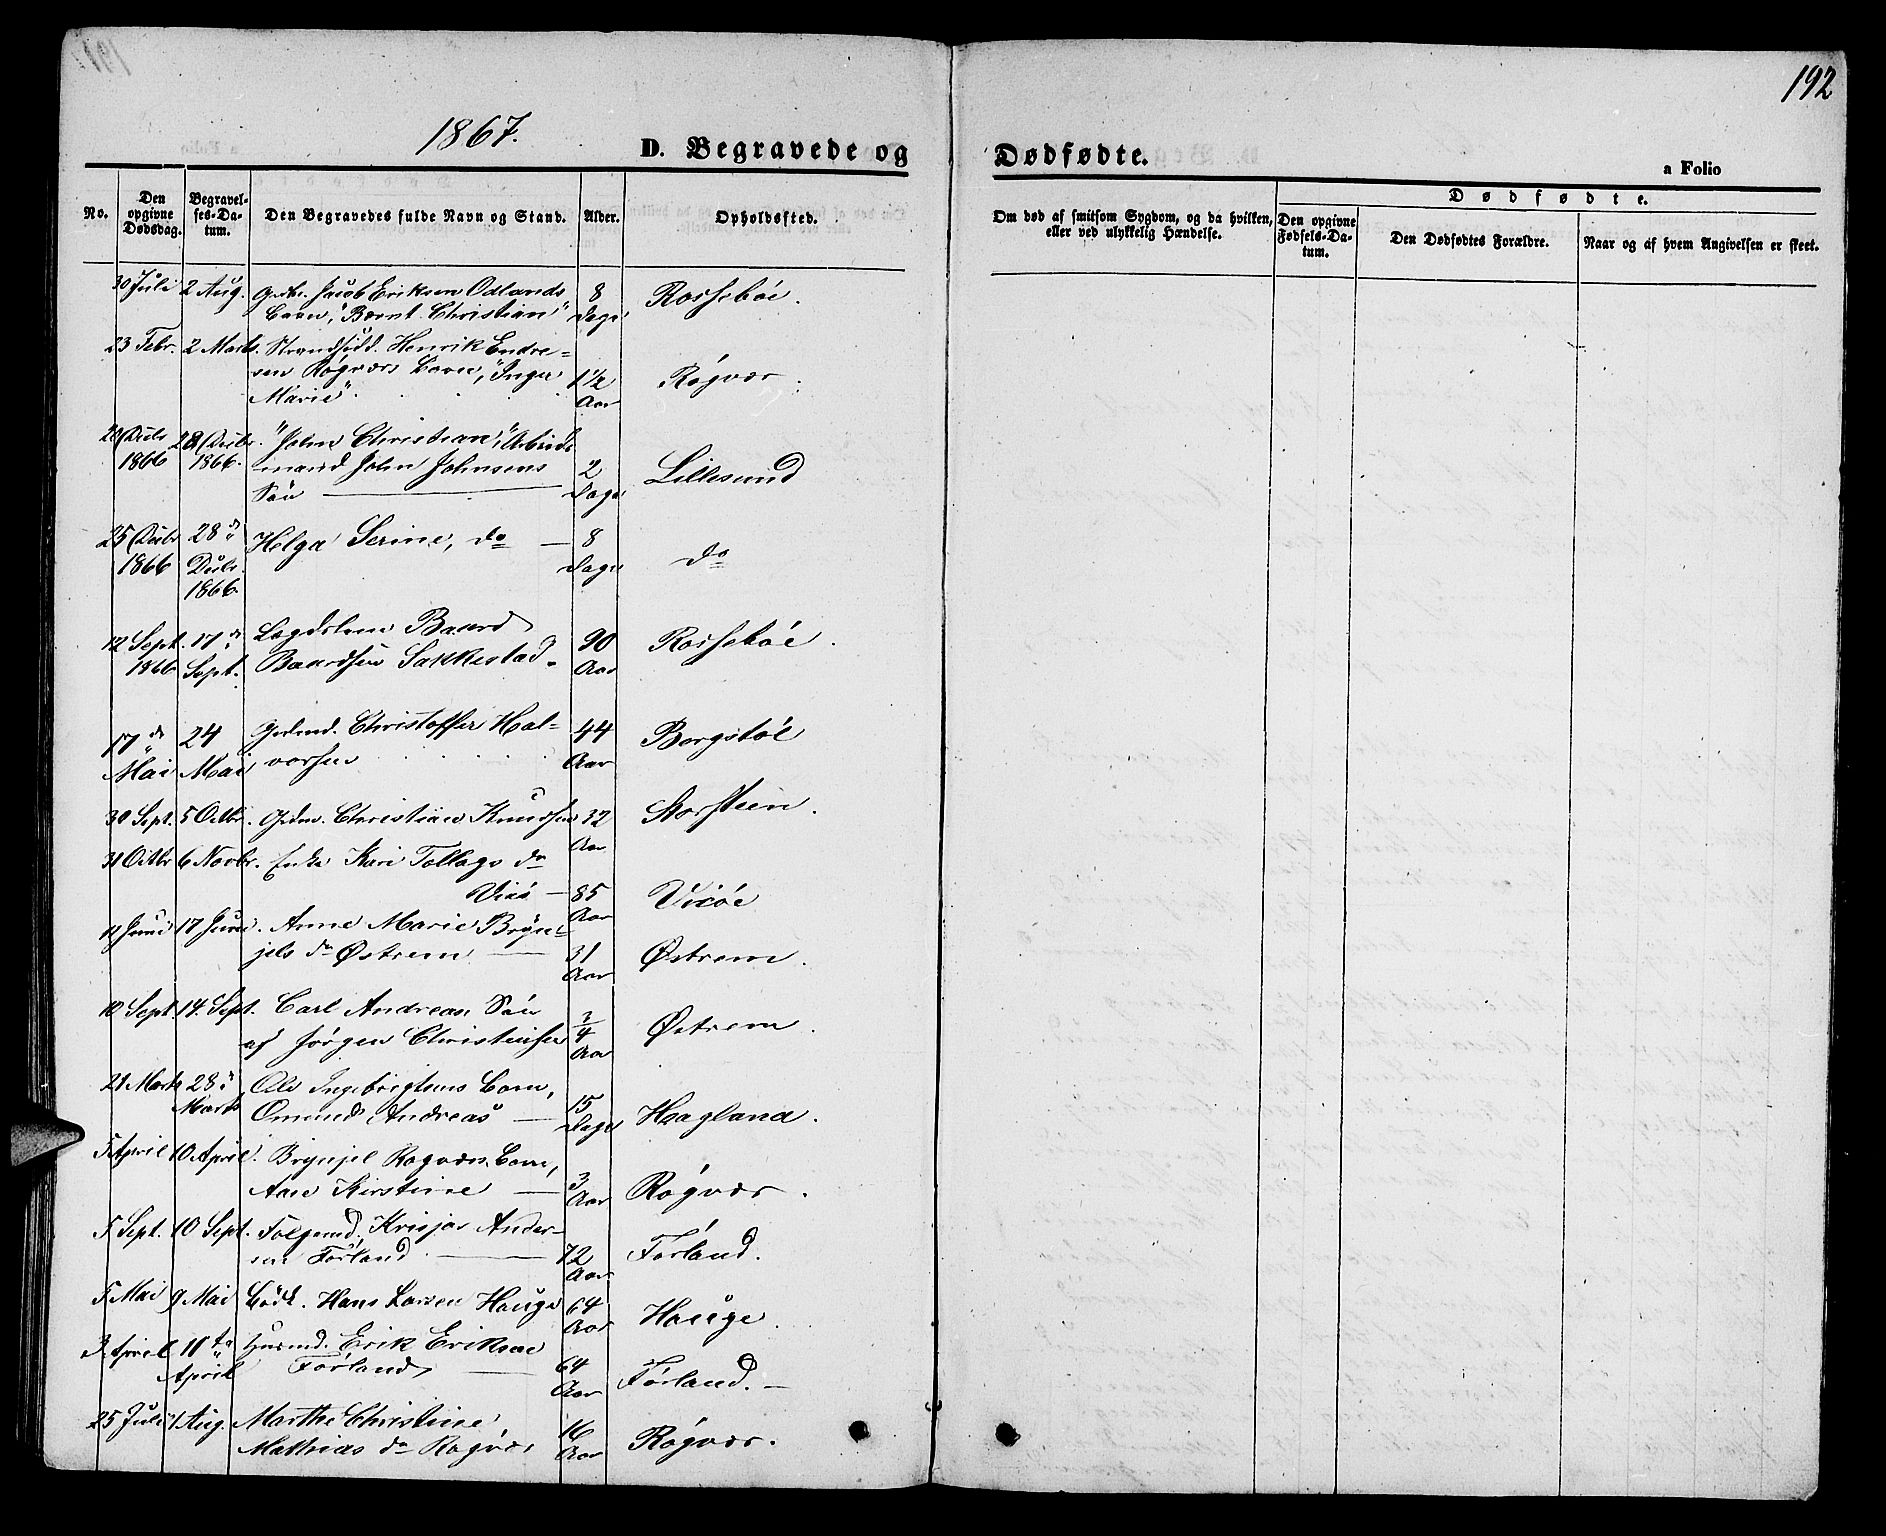 192
1867.
D. Begravede og
Dødfødte.
a Folio
No.
Den opgivne Dødsdag.
Begravel-
ses-Da-
tum.
Den Begravedes fulde Navn og Stand.
Alder.
Opholdssted.
Om død af smitsom Sygdom, og da hvilken,
eller ved ulykkelig Hændelse.
Dødfødte.
Den opgivne
Fødsels-Da-
tum.
Den Dødfødtes Forældre.
Naar og af hvem Angivelsen er skeet.
30 Juli 2 Aug. Jacob Eriksen Odlands 8 Rossebøe.
Barn, "Bernt Christian" Dage
23 Febr. 2 Marts. Strandsidd. Henrik Endre-
sen Røgværs Barn, "Inger 1 1/2 Røgvær.
Marie" Aar
28 Decbr. "John Christian", Arbeids
1866 1866. mand John Johnsens 2 Lillesund
Søn Dage
25 Decbr 28 d Helga Serine, do 8 do
1866 Decbr. Dage
1866.
12 Sept. 17 d Baard 90 Rossebøe.
1866 Sept. Baardsen Sakkestad. Aar
17 d 24 Grdmd. Christoffer Hal- 44 Borgstøl
Mai Mai vorsen Aar
30 Sept. 5 Octbr. Grdm. Christian Knudsen 32 Storsteen.
Aar
31 Octbr 6 Novbr. Enke Kari Tollags da
Vixø 85 Vicøe
Aar
11 Juni 17 Juni. Anne Marie Bryn-
jels da Østrem 31 Østrem.
Aar
10 Sept. 14. Sept. Carl Andreas Søn 3/4 Østrem.
af Jørgen Christensen Aar
21 Marts 28 Ole Ingebrigtsens Barn, 15
Marts Omund Andreas Dage Haagland.
5 April 10 April. Brynjel Røgværs Barn, 3
Aase Kirstine Aar Røgvær.
5 Sept. 10 Sept. Folgemd. Krisjan Ander-
sen Førland 72 Førland.
Aar
5 Mai 9 Mai Hans Larsen Hauge 64 Hauge.
Aar
3. April 11 te Husmd. Erik Eriksen
April Førland 64 Førland.
Aar
25 Juli 1 Aug. Marthe Christine 16 Røgvær.
Mathias da Røgvær Aar